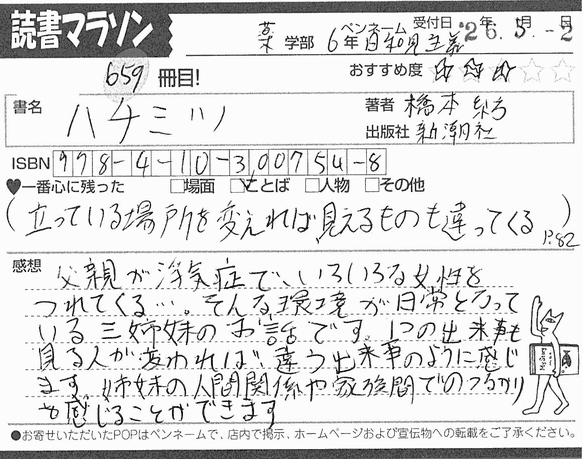 読書マラソン
薬 学部 6年 ペンネーム 日和見主義 受付日 '26年 5月 -2日
659 冊目!
おすすめ度 ☆☆☆☆☆
書名 ハチミツ
著者 橋本 紡
出版社 新潮社
ISBN 978-4-10-300754-8
♥一番心に残った □場面 ☑ことば □人物 □その他
(立っている場所を変えれば、見えるものも違ってくる) P.82
感想 父親が浮気症で、いろいろな女性を
つれてくる…。そんな環境が日常となって
いる三姉妹のお話です。1つの出来事も
見る人が変われば違う出来事のように感じ
ます。姉妹の人間関係や家族間でのつながり
も感じることができます
●お寄せいただいたPOPはペンネームで、店内で掲示、ホームページおよび宣伝物への転載をご了承ください。